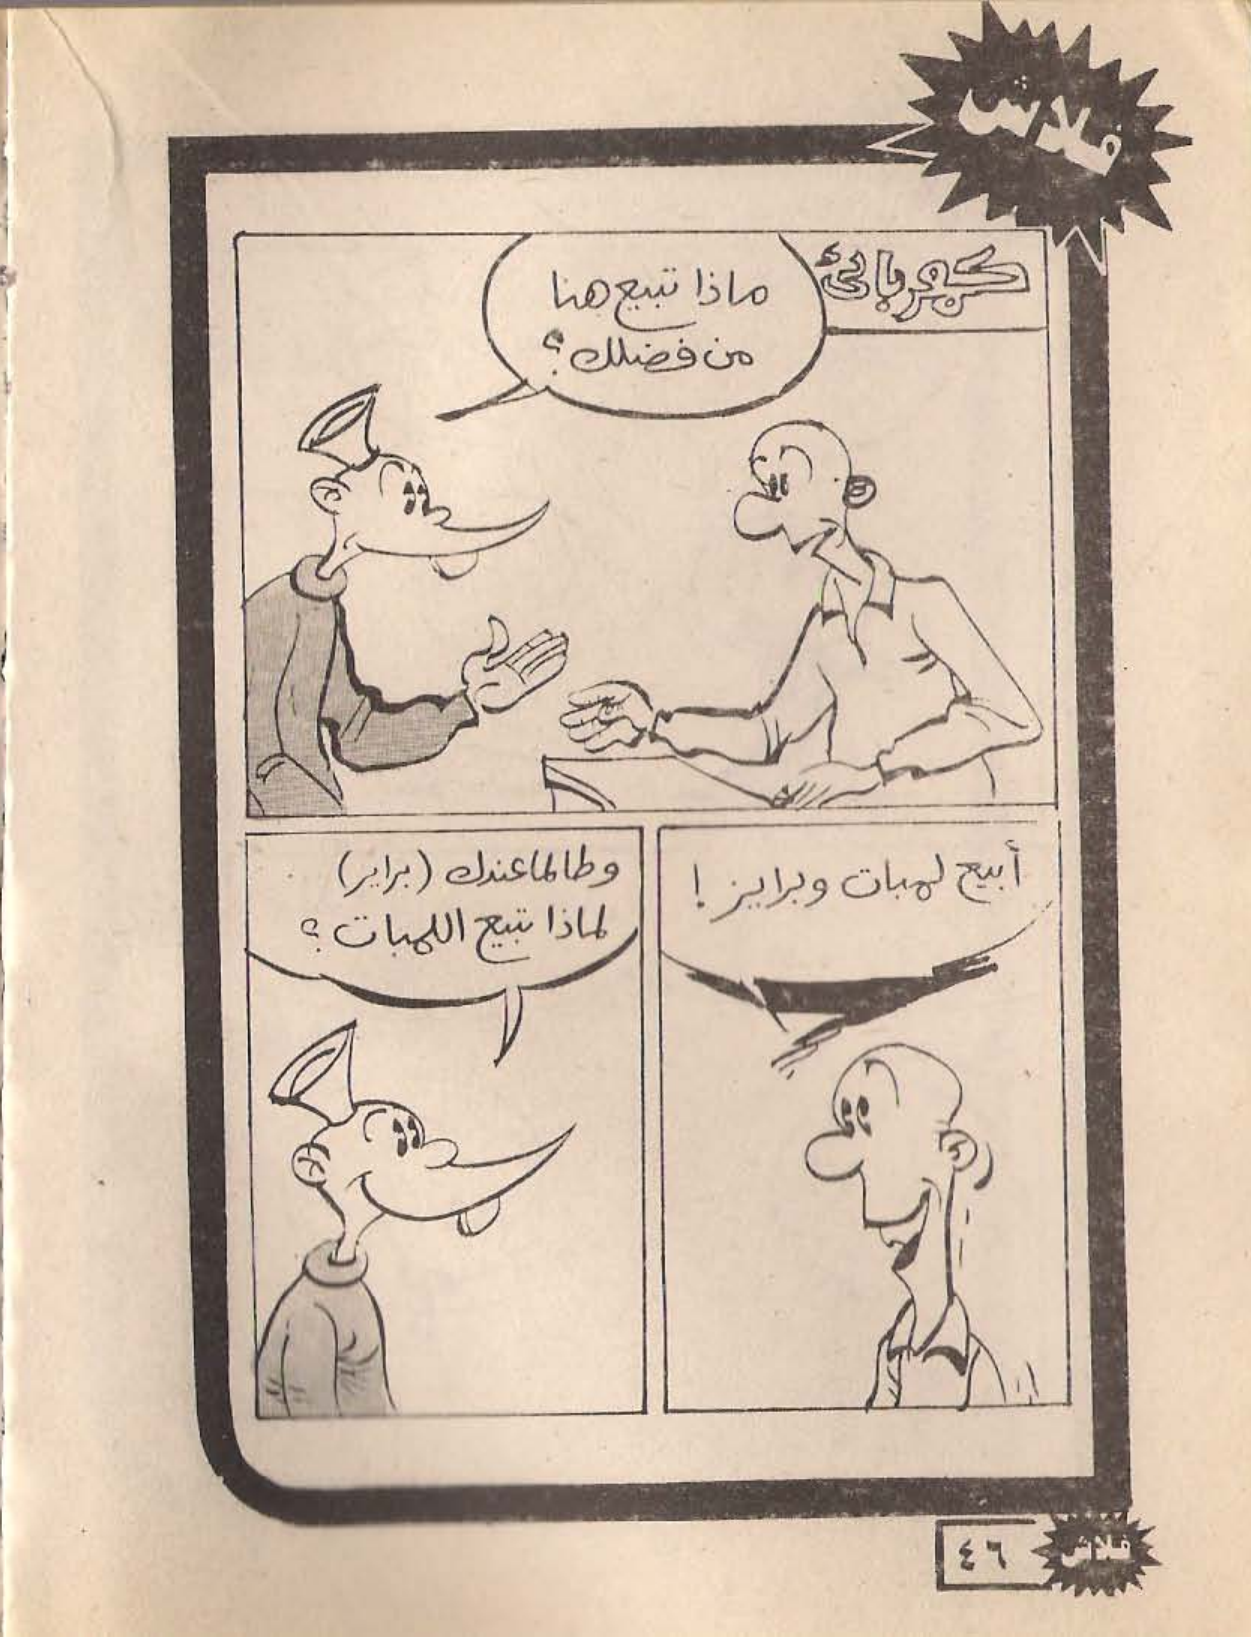 فلاش
كهربائى
ماذا تبيع هنا
من فضلك؟
أبيع لمبات وبرايز!
وطالما عندك (براير)
لماذا تبيع اللمبات؟
٤٦
فلاش